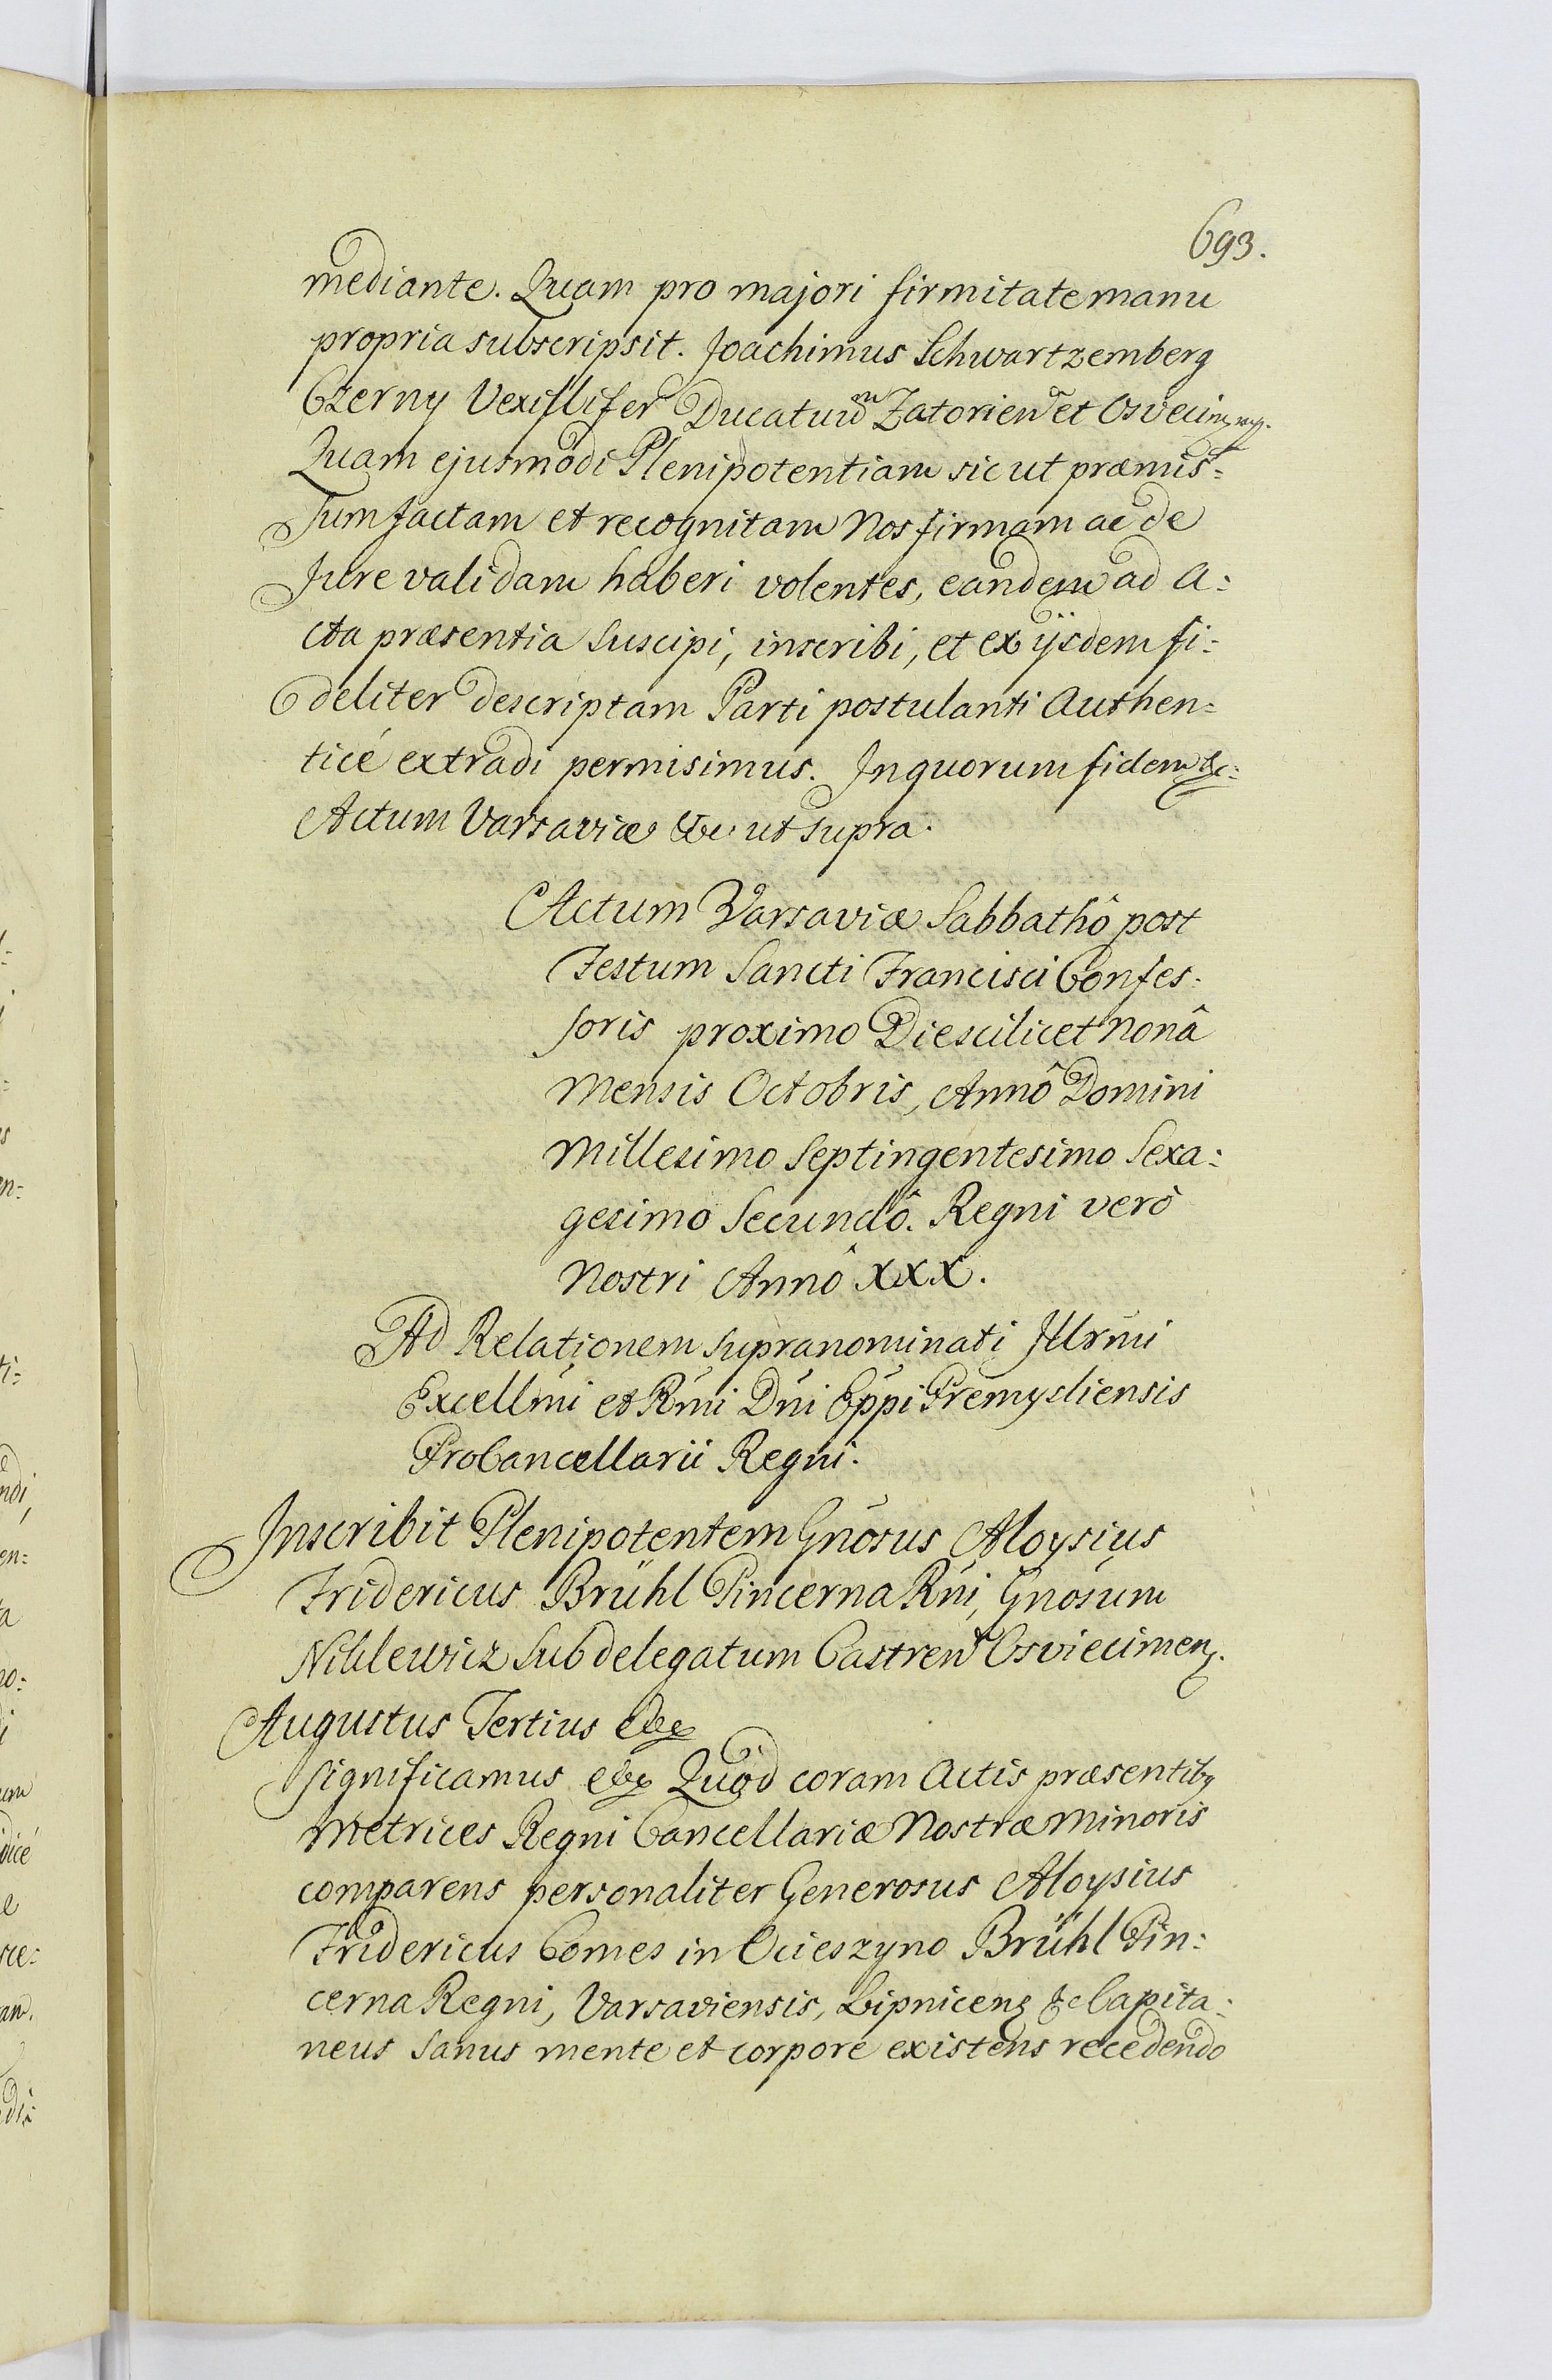 693.
mediante. Quam pro majori firmitate manu
propria subscripsit. Joachimus Schwartzemberg
Czerny Vexillifer Ducatuum Zatorien et Osvecim mp.
Quam ejusmodi Plenipotentiam sicut præmis=
sum factam et recognitam Nos firmam ac de
Jure validam haberi volentes, eandem ad A=
cta præsentia suscipi, inscribi, et ex ijsdem fi=
deliter descriptam Parti postulanti Authen=
ticé extradi permisimus. In quorum fidem &c:
Actum Varsaviæ &c ut supra.
Actum Varsaviæ Sabbathô post
Festum Sancti Francisci Confes=
soris proximo Die scilicet Nonâ
Mensis Octobris, Annô Domini
Millesimo Septingentesimo Sexa=
gesimo Secundô. Regni verò
Nostri Annô XXX.
Ad Relationem supranominati Illrmi
Excellmi et Rmi Dni Eppi Premysliensis
ProCancellarii Regni.
Inscribit Plenipotentem Gnosus Aloysius
Fridericus Brühl Pincerna Rni, Gnosum
Niklewicz Subdelegatum Castren Osviecimen.
Augustus Tertius &c
significamus &c Quòd coram Actis præsentibq
Metrices Regni Cancellariæ Nostræ Minoris
comparens personaliter Generosus Aloysius
Fridericus Comes in Ocieszyno Brühl Pin=
cerna Regni, Varsaviensis, Lipnicens &c Capita=
neus sanus mente et corpore existens recedendo